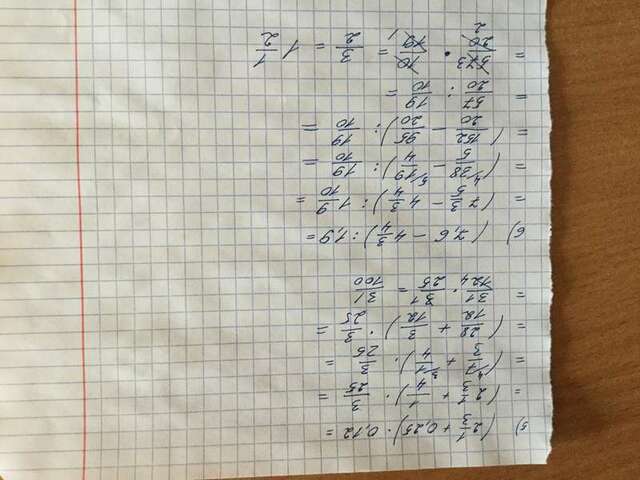 5) (2 1/3 + 0,25) · 0,12 =
= (2 1/3 + 1/4) · 3/25 =
= (⁴⁾7/3 + ³⁾1/4) · 3/25 =
= (28/12 + 3/12) · 3/25 =
= 31/12 4 · 3 1/25 = 31/100
6) (7,6 − 4 3/4) : 1,9 =
= (7 3/5 − 4 3/4) : 1 9/10 =
= (⁴⁾38/5 − ⁵⁾19/4) : 19/10 =
= (152/20 − 95/20) : 19/10 =
= 57/20 : 19/10 =
= 57 3/20 2 · 10/19 1 = 3/2 = 1 1/2